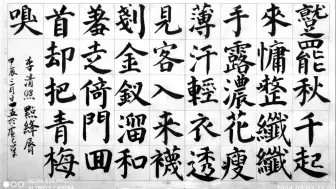 蹵罷秋千起
來慵整纖纖
手露濃花瘦
薄汗輕衣透
見客入來襪
剗金釵溜和
羞走倚門囬
首却把青梅
嗅
李清照 點絳唇
甲辰